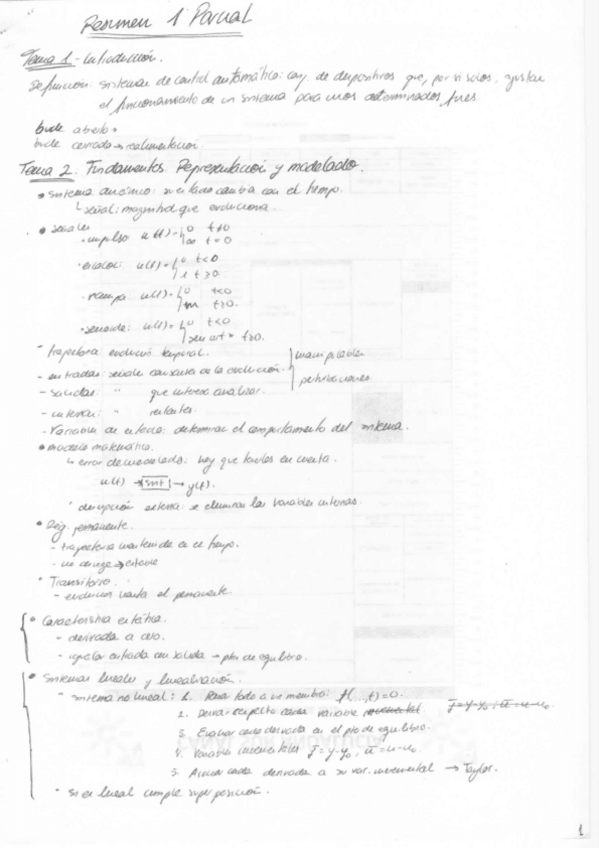 Resumen 1 Parcial
Tema 1 - Introducción.
Definición: sistemas de control automático: conj. de dispositivos que, por si solos, ajustan
el funcionamiento de un sistema para unos determinados fines.
bucle abierto
bucle cerrado → realimentación
Tema 2. Fundamentos. Representación y modelado.
• sistema dinámico: su estado cambia con el tiempo.
↳ señal: magnitud que evoluciona.
• señales
· impulso u(t) = { 0 t≠0
∞ t=0
· escalón: u(t) = { 0 t<0
1 t≥0
· rampa u(t) = { 0 t<0
t≥0.
· senoide: u(t) = { 0 t<0
sen wt t≥0.
- trayectoria: evolución temporal.
- entradas: señales causantes de la evolución. manipulables
- salidas: " que interesa analizar. perturbaciones
- internas: " restantes.
- Variables de estado: determinan el comportamiento del sistema.
• modelo matemático.
↳ error de modelado: hay que tenerlos en cuenta.
u(t) → sist → y(t).
· descripción externa: se eliminan las variables internas.
• Rég. permanente.
- trayectoria mantenida en el tiempo.
- no diverge → estable
· Transitorio.
- evolución hasta el permanente
• Característica estática.
- derivada a cero.
- igualar entrada con salida → pto de equilibrio.
• Sistemas lineales y linealización.
- sistema no lineal: 1. Pasar todo a un miembro: f(...,t)=0.
2. Derivar respecto cada variable incremental y̅=y-y₀; u̅=u-u₀.
3. Evaluar cada derivada en el pto de equilibrio.
4. Variables incrementales y̅=y-y₀, u̅=u-u₀
5. Asociar cada derivada a su var. incremental → Taylor.
· Si es lineal cumple superposición.
1